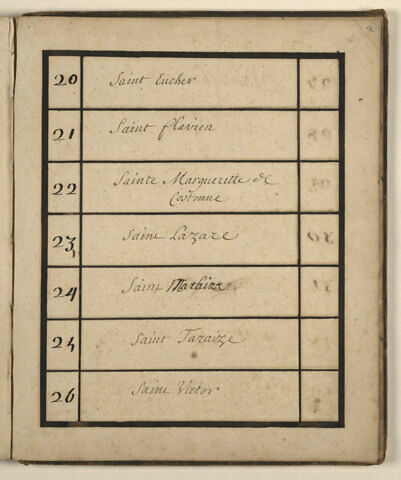 20 Saint Eucher
21 Saint flavien
22 Sainte Marguerette de
Cortonne
23 Saint Lazare
24 Saint
25 Saint Taraize
26 Saint Victor